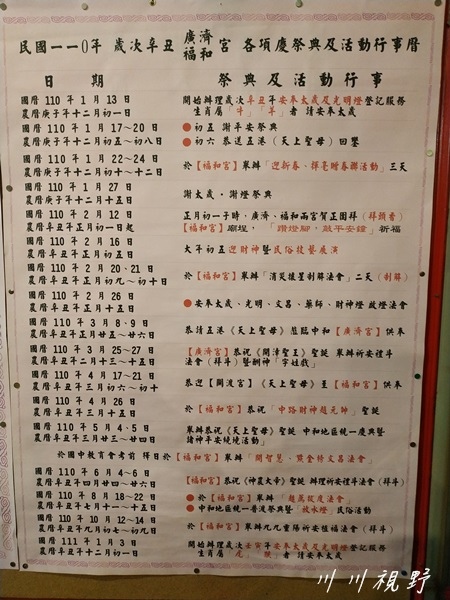 民國一一0年 歲次辛丑 廣濟福和宮 各項慶祭典及活動行事曆
日期 祭典及活動行事
國曆 110 年 1 月 13 日
農曆庚子年十二月初一日
開始辦理歲次辛丑年安奉太歲及光明燈登記服務
生肖屬「牛」「羊」者 請安奉太歲
國曆 110 年 1 月 17~20 日
農曆庚子年十二月初五~初八日
●初五 謝平安祭典
●初六 恭送五港《天上聖母》回鑾
國曆 110 年 1 月 22~24 日
農曆庚子年十二月初十~十二日
於【福和宮】舉辦「迎新春、揮毫贈春聯活動」三天
國曆 110 年 1 月 27 日
農曆庚子年十二月十五日
謝太歲、謝燈祭典
國曆 110 年 2 月 12 日
農曆辛丑年正月初一日起
正月初一子時,廣濟、福和兩宮賀正團拜(拜頭香)
【福和宮】廟埕,「鑽燈腳,敲平安鐘」祈福
國曆 110 年 2 月 16 日
農曆辛丑年正月初五日
大年初五迎財神暨民俗技藝展演
國曆 110 年 2 月 20、21 日
農曆辛丑年正月初九~初十日
於【福和宮】舉辦「消災禳星制解法會」二天(制解)
國曆 110 年 2 月 26 日
農曆辛丑年正月十五日
●安奉太歲、光明、文昌、藥師、財神燈 啟燈法會
國曆 110 年 3 月 8、9 日
農曆辛丑年正月廿五~廿六日
恭請五港《天上聖母》蒞臨中和【廣濟宮】供奉
國曆 110 年 3 月 25~27 日
農曆辛丑年二月十三~十五日
【廣濟宮】恭祝《開漳聖王》聖誕 舉辦祈安禮斗
法會(拜斗)暨酬神「字姓戲」
國曆 110 年 4 月 17~21 日
農曆辛丑年三月初六~初十
恭迎【關渡宮】《天上聖母》至【福和宮】供奉
國曆 110 年 4 月 26 日
農曆辛丑年三月十五日
於【福和宮】恭祝「中路財神趙元帥」聖誕
國曆 110 年 5 月 4、5 日
農曆辛丑年三月廿三~廿四日
舉辦恭祝《天上聖母》聖誕 中和地區統一慶典暨
諸神平安遶境活動
於國中教育會考前 擇日於【福和宮】舉辦「開智慧、賞金榜文昌法會」
國曆 110 年 6 月 4~6 日
農曆辛丑年四月廿四~廿六日
【福和宮】恭祝《神農大帝》聖誕 辦理祈安禮斗法會(拜斗)
國曆 110 年 8 月 18~22 日
農曆辛丑年七月十一~十五日
●於【福和宮】舉辦「超薦拔度法會」
●中和地區統一普渡祭典暨「放水燈」民俗活動
國曆 110 年 10 月 12~14 日
農曆辛丑年九月初七~初九日
於【福和宮】舉辦九九重陽祈安植福法會(拜斗)
國曆 111 年 1 月 3 日
農曆辛丑年十二月初一日
開始辦理歲次壬寅年安奉太歲及光明燈登記服務
生肖屬「虎」「猴」者 請安奉太歲
川川視野